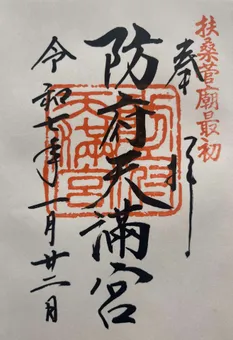 扶桑菅廟最初
奉拝
防府天満宮
令和七年十一月廿二日